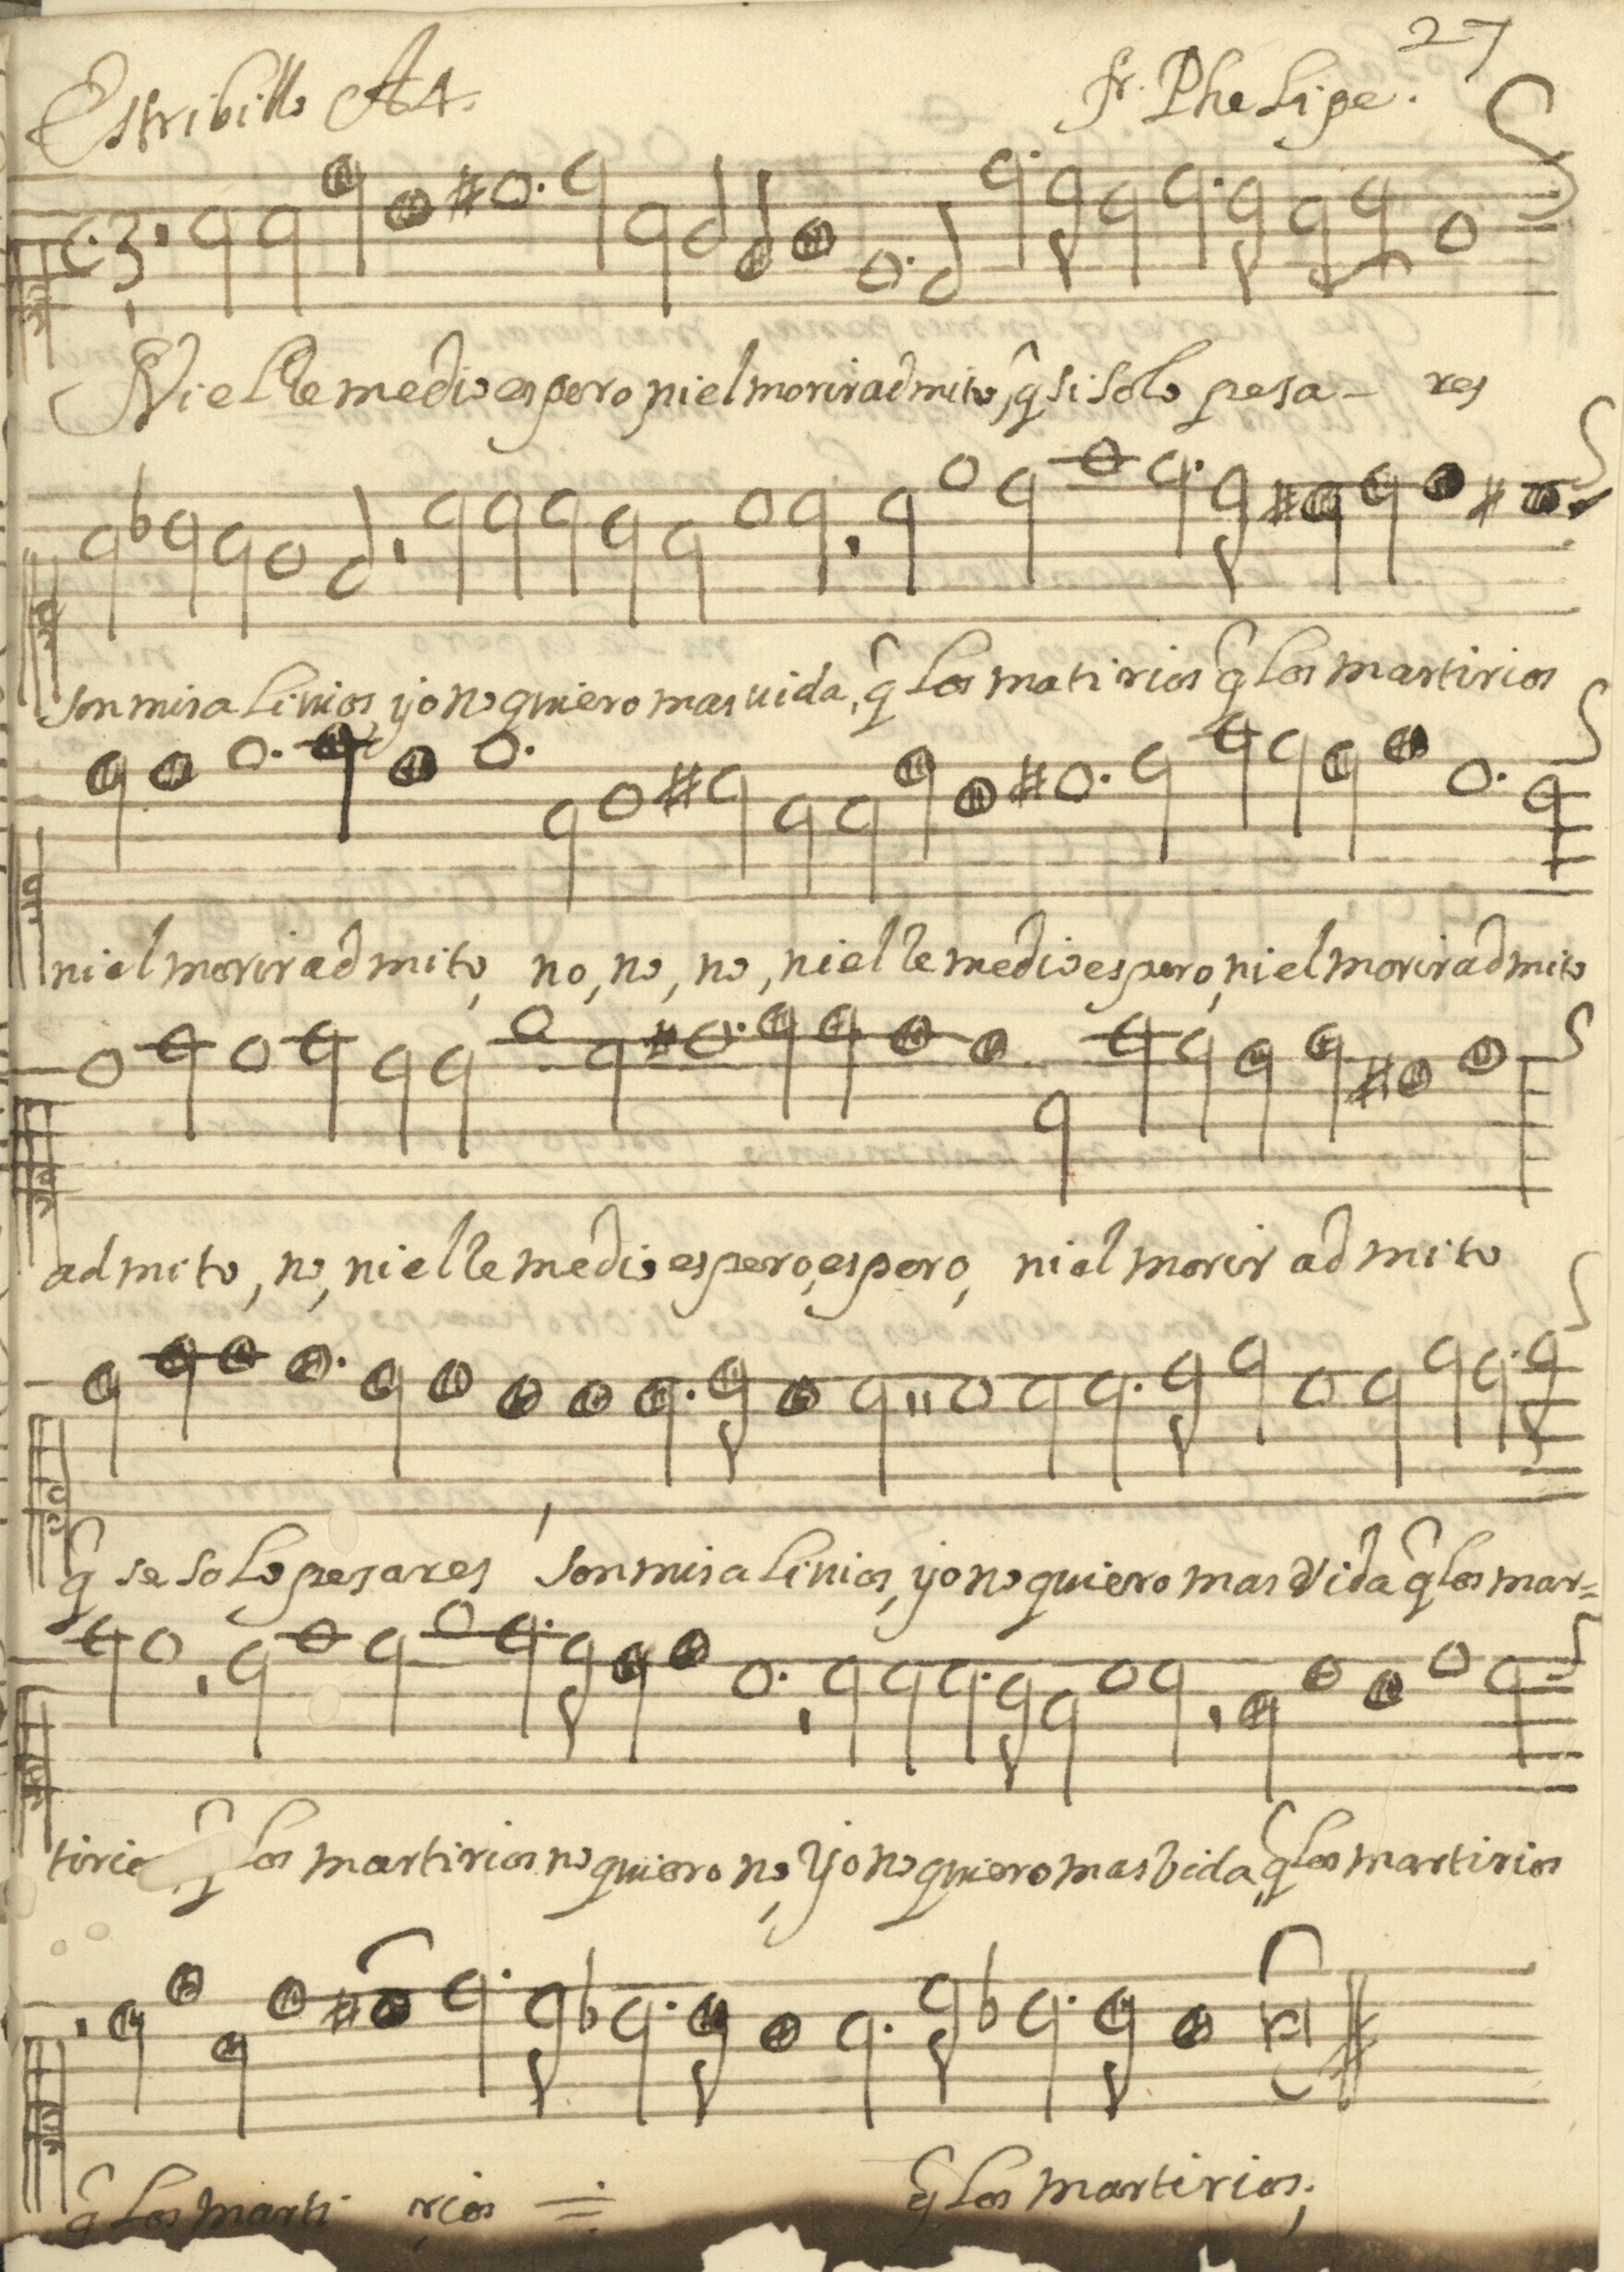 27
Estribillo A4. fr. Phelipe.
Ni el Remedio espero ni el morir admito, q̂ si solo pesa- res
son mis alivios, yo no quiero mas vida, q̂ los matirios q̂ los martirios
ni el morir admito, no, no, no, ni el Remedio espero, ni el morir admito
admito, no, ni el Remedio espero, espero, ni el morir admito
q̂ se solo pesares son mis alivios, yo no quiero mas vida q̂ los mar=
los martirios no quiero no, yo no quiero mas vida, q̂ los martirios
q̂ los marti rios q̂ los martirios;